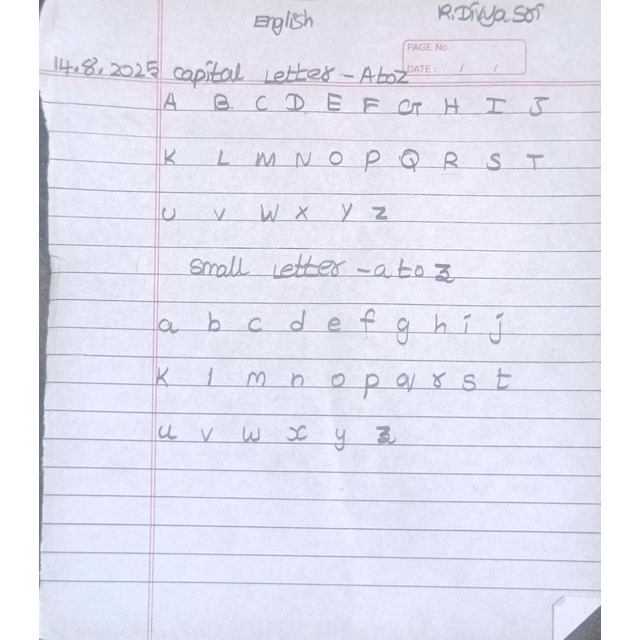 English R.Divya Sri
PAGE No.
14.8.2025 capital Letter - A to Z DATE: / /
A B C D E F G H I J
K L M N O P Q R S T
U V W X Y Z
small Letter - a to z
a b c d e f g h i j
k l m n o p q r s t
u v w x y z